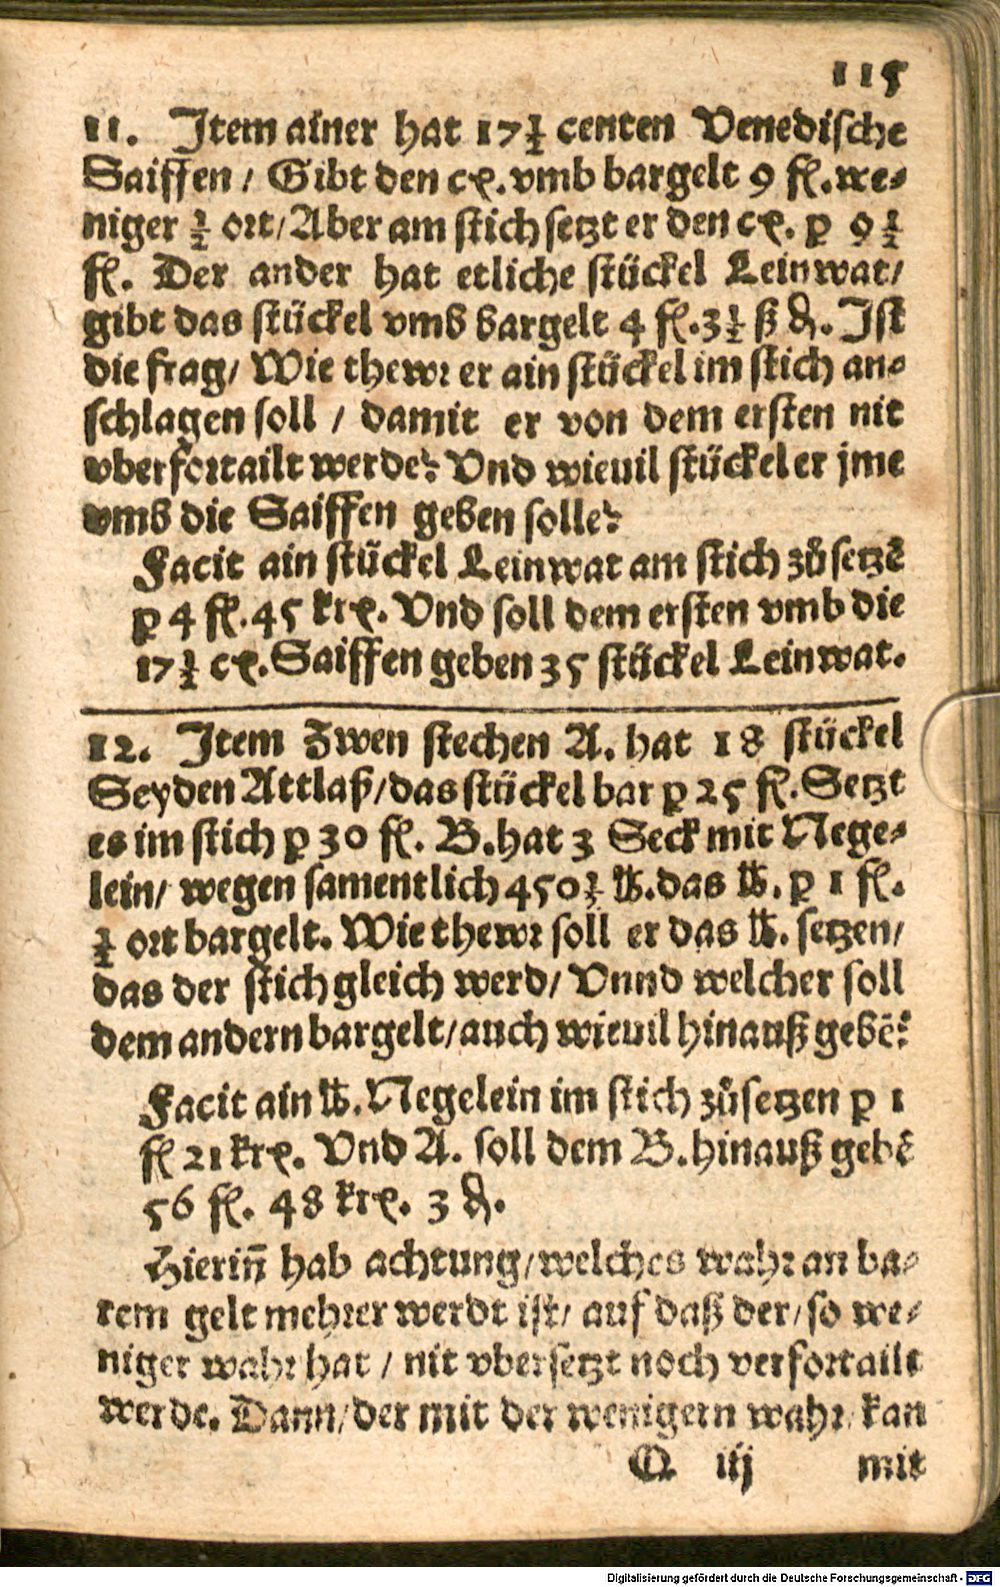 115
11. Item ainer hat 17½ centen Venedische
Saiffen / Gibt den cꝫ. vmb bargelt 9 fl. we⸗
niger ½ ort / Aber am stich setzt er den cꝫ. p 9½
fl. Der ander hat etliche stückel Leinwat /
gibt das stückel vmb bargelt 4 fl. 3½ ß ₰. Ist
die frag / Wie thewr er ain stückel im stich an⸗
schlagen soll / damit er von dem ersten nit
vberfortailt werde? Vnd wieuil stückel er jme
vmb die Saiffen geben solle?
Facit ain stückel Leinwat am stich zůsetzē
p 4 fl. 45 krꝫ. Vnd soll dem ersten vmb die
17½ cꝫ. Saiffen geben 35 stückel Leinwat.
12. Item Zwen stechen A. hat 18 stückel
Seyden Attlaß / das stückel bar p 25 fl. Setzt
es im stich p 30 fl. B. hat 3 Seck mit Nege⸗
lein / wegen samentlich 450½ ℔. das ℔. p 1 fl.
½ ort bargelt. Wie thewr soll er das ℔. setzen /
das der stich gleich werd / Vnnd welcher soll
dem andern bargelt / auch wieuil hinauß gebē?
Facit ain ℔. Negelein im stich zůsetzen p 1
fl 21 krꝫ. Vnd A. soll dem B. hinauß gebē
56 fl. 48 krꝫ. 3 ₰.
Hierin̄ hab achtung / welches wahr an ba⸗
rem gelt mehrer werdt ist / auf daß der / so we⸗
niger wahr hat / nit vbersetzt noch verfortailt
werde. Dann / der mit der wenigern wahr / kan
Q iij mit
Digitalisierung gefördert durch die Deutsche Forschungsgemeinschaft - DFG